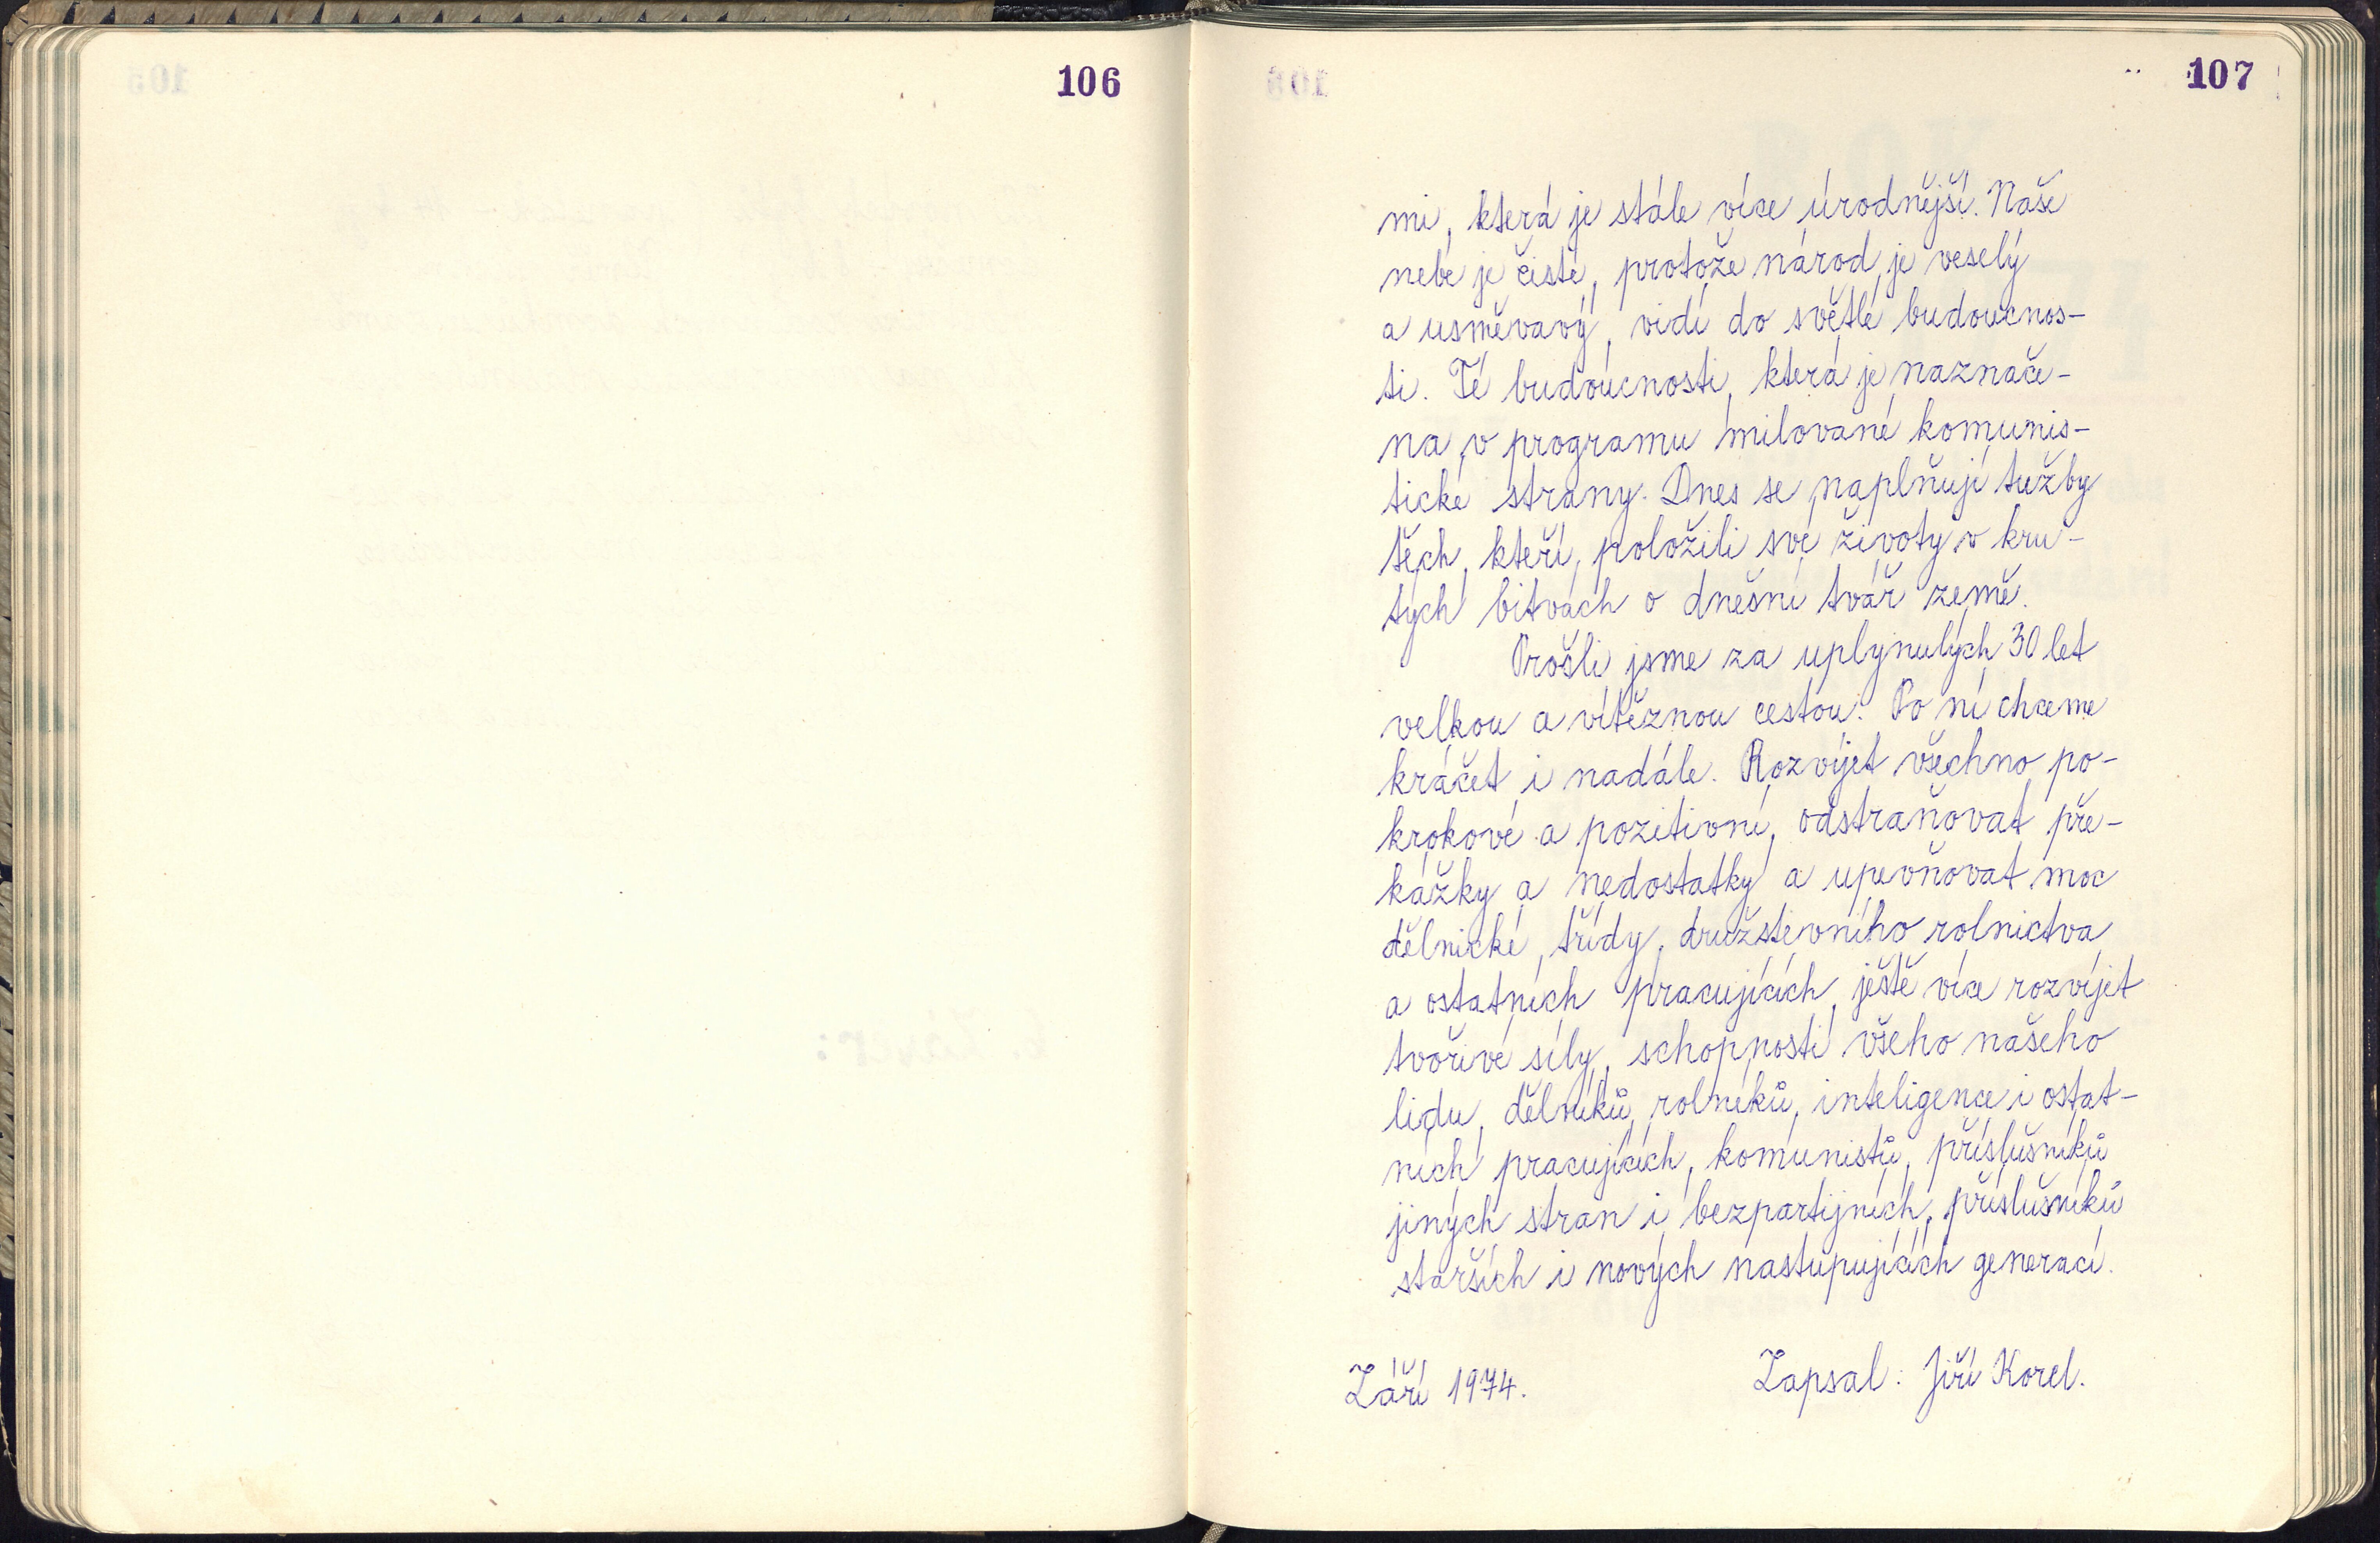 106
107
mi, která je stále více úrodnější. Naše
nebe je čisté, protože národ je veselý
a usměvavý, vidí do světlé budoucnos-
ti. Té budoucnosti, která je naznače-
na v programu milované komunis-
tické strany. Dnes se naplňují tužby
těch, kteří položili své životy v kru-
tých bitvách o dnešní tvář země.
Prošli jsme za uplynulých 30 let
velkou a vítěznou cestou. Po ní chceme
kráčet i nadále. Rozvíjet všechno po-
krokové a pozitivní, odstraňovat pře-
kážky a nedostatky a upevňovat moc
dělnické třídy, družstevního rolnictva
a ostatních pracujících, ještě více rozvíjet
tvořivé síly, schopnosti všeho našeho
lidu, dělníků, rolníků, inteligence i ostat-
ních pracujících, komunistů, příslušníků
jiných stran i bezpartijních, příslušníků
starších i nových nastupujících generací.
Září 1974.
Zapsal: Jiří Korel.